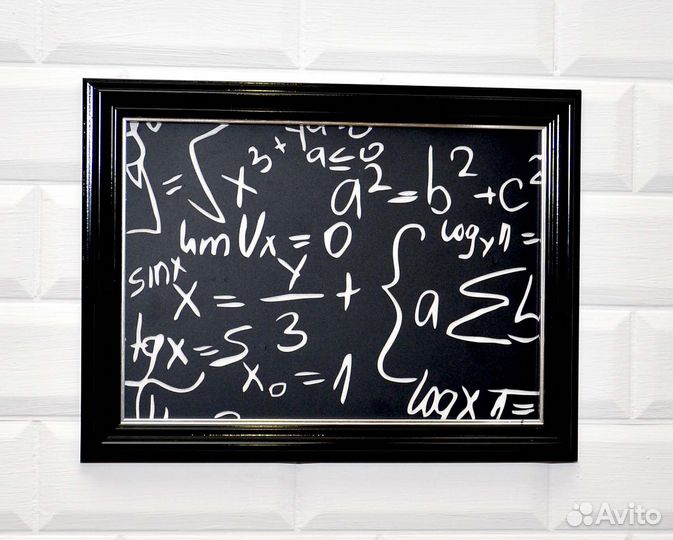 y = √x³ + ya = 0
a ≤ 0
a² = b² + c²
lim Vx = 0
log y π =
sin x
x = y/3 + { a Σ b
tgx = 5
x₀ = 1
log x π =
Avito